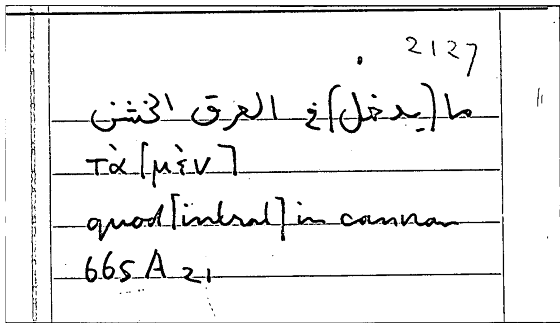 2127
ما [يدخل] في العرق الخشن
τὰ [μὲν]
quod [intrat] in cannam
665 A 21